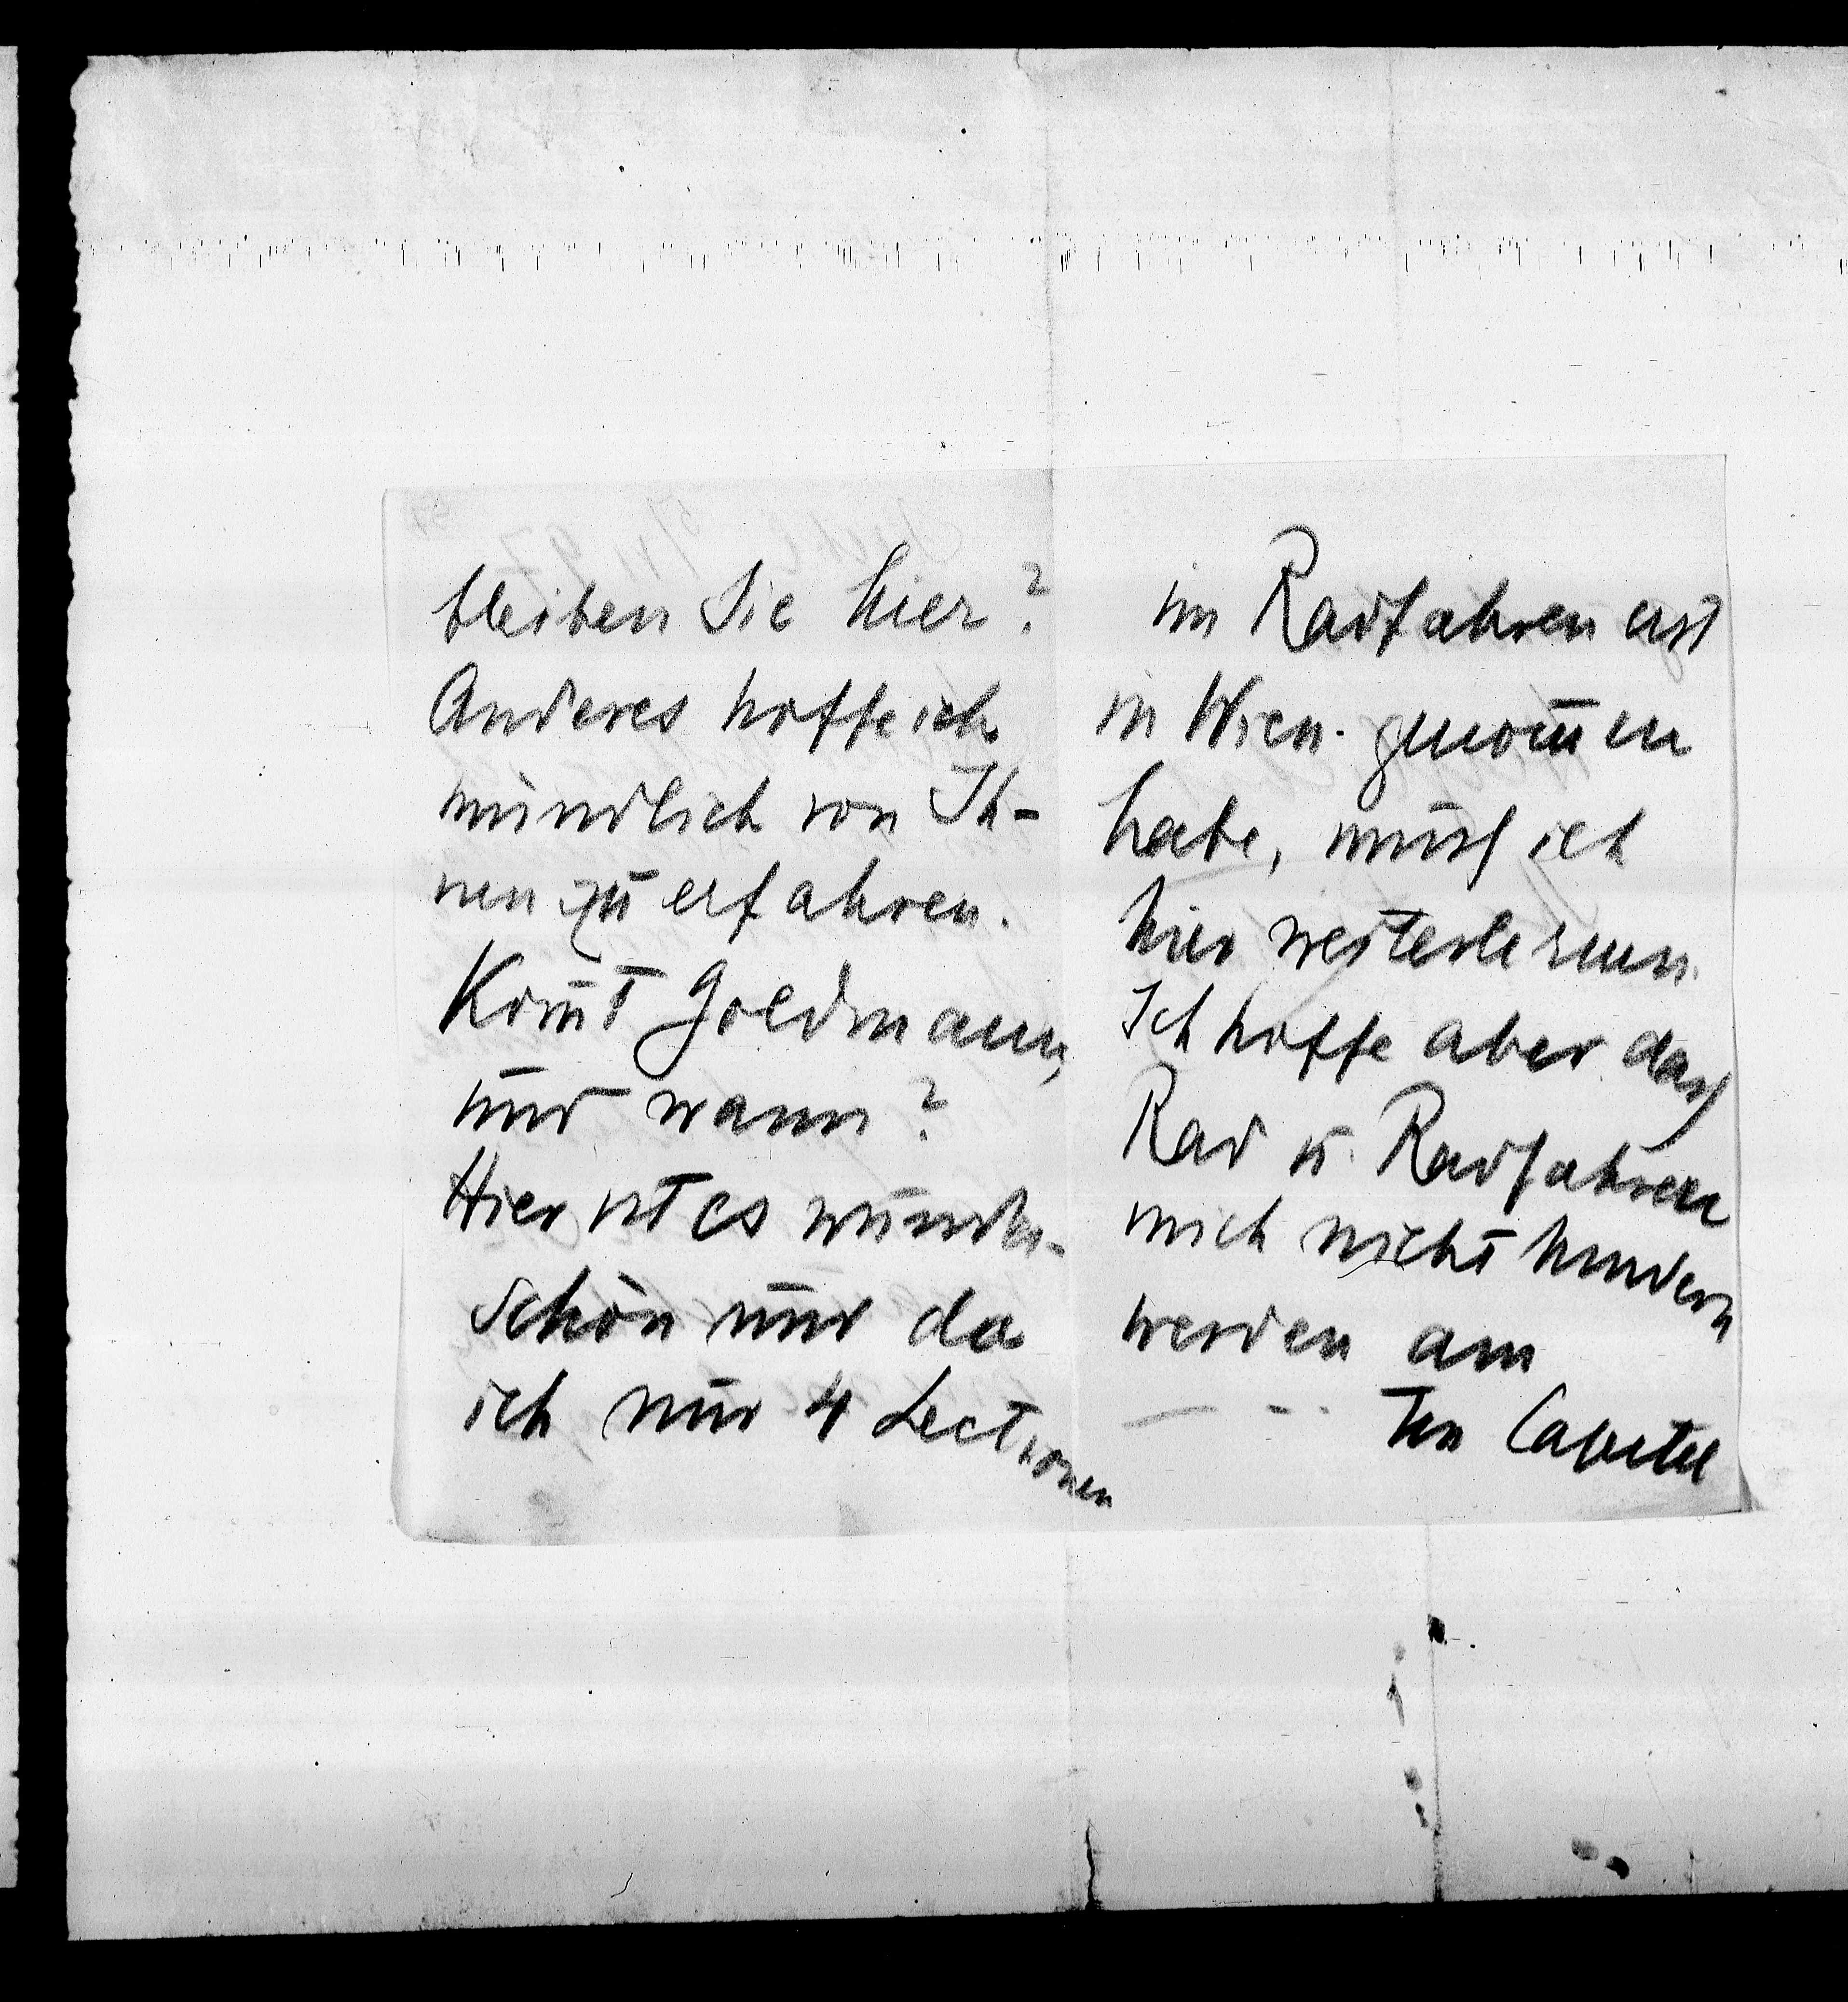 bleiben Sie hier?
Anderes hoffe ich
mündlich von Ih-
nen zu erfahren.
Kom̄t Goldmann,
und wann?
Hier ist es wunder-
schön und da
ich nur 4 Lectionen
im Radfahren erst
in Wien genom̄en
habe, muss ich
hier weiterlernen.
Ich hoffe aber dass
Rad u. Radfahren
mich nicht hindern
werden am
ten Capitel